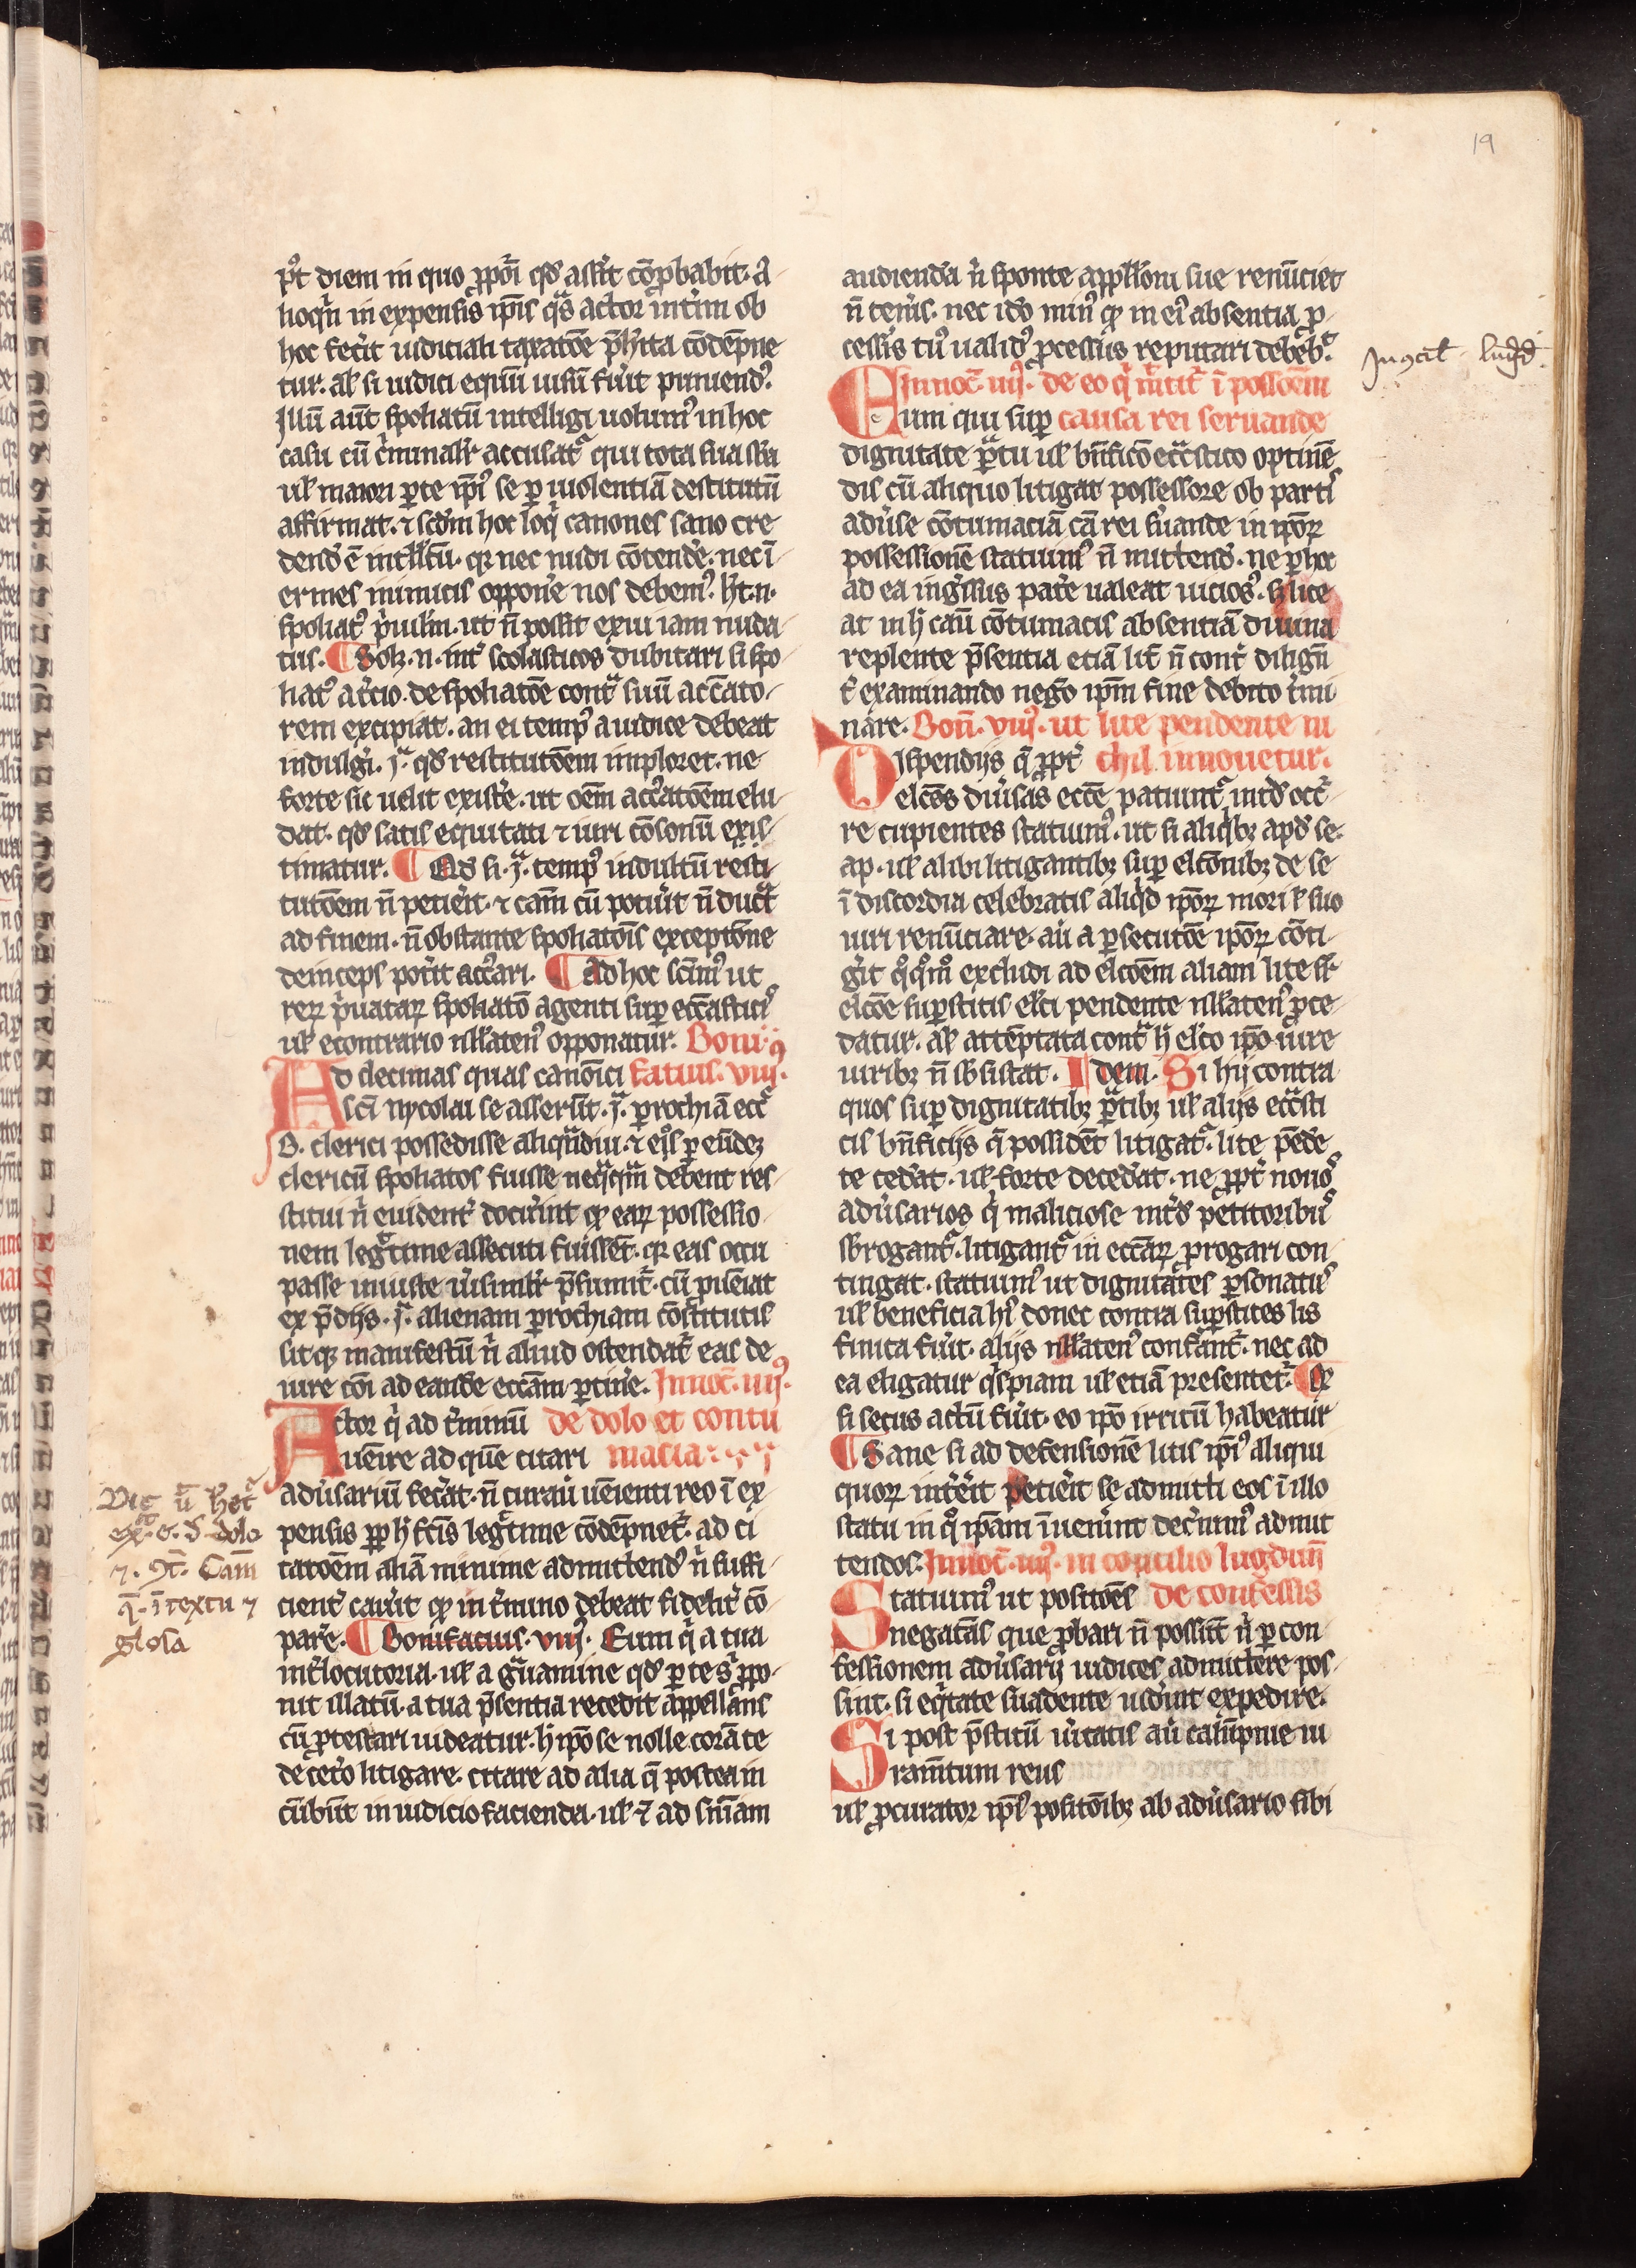 19
pꝰt diem in quo ꝓpoĩ qd̾ aſſẽit cõꝓbabit. a-
lioqñ in expenſis ip̃is qͣs actor int̃im ob
hoc fec̃it iudiciali taxatõe p̃h̃ita cõdẽpne
tur. al̾ ſi iudici equũ uiſũ fuĩt puniendꝰ.
Illũ aũt ſpoliatũ intelligi uolumꝰ in hoc
caſu cũ c̃minalit̃ accuſatᷓ qui tota ſua ſb̃a
ul̾ maiori ꝑte ip̃iꝰ ſe ꝑ uiolentiã deſtitutũ
affirmat. ⁊ ſcd̃m hoc loq̇ canones ſano cre
dend̾ ẽ intll̾c̃tu. qꝛ nec nudi cõtend̾e. nec ĩ-
ermes inimicis opponẽ nos debemꝰ. h̾t. n.
ſpoliatꝰ p̃uil̾m. ut ñ poſſit exui iam nuda-
tus. ¶ Solꝫ. n. int̃ scolaſticos dubitari ſi ſpo-
liatꝰ a t̃cio. de ſpoliatõe contᷓ ſuũ accᷓato-
rem excipiat. an ei tempꝰ a iudice debeat
indulgĩ. ĩᷓ qd̾ reſtitutõem imploret. ne
forte ſic uelit exiſtẽ. ut oẽm acc̃atõem elu-
dat. qd̾ ſatis equitati ⁊ iuri cõſonũ exiſ-
timatur. ¶ Qd̾ ſi. ĩᷓ. tempꝰ indultũ reſti
tutõem ñ petiẽit. ⁊ cãm cũ potũit ñ duc̃t
ad finem. ñ obſtante ſpoliatõis exceptõne
deinceps potĩt acc̃ari. ¶ ad hoc ſcim̃ꝰ ut
reꝝ p̃uataꝝ ſpoliatõ agenti ſuꝑ ecc̃aſticiſ
ul̾ econtrario nll̾atenꝰ opponatur. Boni-
Ad decimas quas canõici fatius. viij.
sc̃i nycolai ſe aſſerũt. ĩᷓ. ꝑrochiã ecc̃
B. clerici poſſediſſe aliqͣndiu. ⁊ eiſ̾ ꝑ eũdeꝫ
clericũ ſpoliatos fuiſſe neqͣqͣm debent reſ-
ſtitui ñ euident̃ docũint qͩ eaꝝ poſſeſſio-
nem legᷓtime aſſecuti fuiſſẽt. qꝛ eas occu
paſſe iniuſte ũiſimilit̃ p̃ſumit̃. cũ ꝓueĩat
ex p̃dijs. ĩᷓ. alienam ꝑrochiam cõſtitutis
ſitqꝫ manifeſtũ ñ aliud oſtendat̃ eas de
iure cõi ad eande ecc̃am ꝑtinẽ. Innoc̃. iiijꝰ.
Actor q̇ ad t̃minũ de dolo et contu
uẽire ad quẽ citari macia.
adũſariũ fec̃at. ñ curaũ uẽienti reo ĩ ex-
penſis ꝓꝑ h̾ fc̃is legᷓtime cõdẽpnet̃. ad ci
tatõem aliã minime admittendꝰ ñ ſuffi-
cient̃ caũit qͩ in t̃mino debeat fidelit̃ cõ-
parẽ. ¶ Bonifacius. viijꝰ. Eum q̇ a tua
int̃locutoria. ul̾ a gᷓuamine qd̾ ꝑ te ſᷓ ꝓpo-
nit illatũ. a tua p̃ſentia recedit appellans
cũ ꝓteſtari uideatur. h̾ ip̃o ſe nolle corã te
de cet̃o litigare. citare ad alia q̃ poſtea in
cũbũt in iudicio facienda. ul̾ ⁊̃ ad ſñiam
Dic ũ h̾oc̃
ex̃. e. d̾ dolo
⁊. 9t̃. Cam̃
q̃. ĩ textu ⁊
gloſa
audienda ñ ſponte appll̾oni ſue renũciet
ñ tenẽis. nec id̾o minꝰ qͩ in eiꝰ abſentia ꝓ-
ceſſis tuꝰ ualidꝰ ꝓceſſus reputari debebᷓ.
Innoc̃. iiijꝰ. de eo q̇ m̃tit̃ ĩ poſſõem
Eum qui ſuꝑ cauſa rei ſeruande
dignitate ꝑᷓtu ul̾ bñficõ ecc̃ᷓſtico optinẽ
dis cũ aliquo litigat poſſeſſore ob partiſ
adũſe cõtumaciã cã rei ſũande in ip̃oꝝ
poſſeſſionẽ ſtatuimꝰ ñ mittend̾. ne ꝑ hoc
ad ea ingᷓſſus patẽ ualeat uicioſꝰ. ſꝫ lice-
at in h̾ caũ cõtumacis abſentiã diuina
replente p̃ſentia etiã lit̃ ñ cont̃ diligñ
t̃ examinando negõ ip̃m fine debito t̃mi
nare. Boñ. viijꝰ. ut lite pendente ni
Diſpendijs q̃ ꝓpt̃ chil innouetur.
elc̃os diũſas ecc̃e patiunt̃ᷓ intd̾ occᷓ-
re cupientes ſtatuimꝰ. ut ſi aliqͥbꝫ apd̾ ſe.
ap. ul̾ alibi litigantibꝫ ſuꝑ elc̃onibꝫ de ſe
ĩ diſcordia celebratis aliqͥd ip̃oꝝ mori ł ſuo
iuri renũciare. aũ a ꝑſecutõe ip̃oꝝ cõti-
gĩt qͦqͦmꝰ excludi ad elc̃oẽm aliam lite ſꝑ
elc̃oe ſuꝑſtitis elc̃i pendente nll̾atenꝰ ꝓce-
datur. al̾ attẽptata contᷓ h̾ elc̃o ip̃o iure
uiribꝫ ñ ſb̾ſiſtat. Idem. Si hij contra
quos ſuꝑ dignitatibꝫ ꝑᷓtibꝫ ul̾ alijs ecc̃ᷓſti
cis bñficijs q̃ poſſidẽt litigatᷓ. lite pẽdẽ
te cedãt. ul̾ forte decedãt. ne ꝓpt̃ nouoſ
adũſarios q̇ malicioſe intd̾ petitoribuſ
ſb̾rogantᷓ. litigantᷓ in ecc̃aꝝ ꝓrogari con-
tingat. ſtatuimꝰ ut dignitates ꝑſonatuſ
ul̾ beneficia h̾ꝰ donec contra ſuꝑſtites lis
finita fuĩt. alijs nll̾atenꝰ conferant̃. nec ad
ea eligatur qͥſpiam ul̾ etiã preſentet̃. Qͩ
ſi ſecus actũ fuĩt. eo ip̃o irritũ habeatur
¶ Sane ſi ad defenſionẽ litis ip̃iꝰ aliqui
quoꝝ int̃ẽit petiẽit ſe admitti eos ĩ illo
ſtatu in qͦ ip̃am ĩuenĩnt dec̃nimꝰ admit
tendos. Innoc̃. iiijꝰ. in concilio lugduñ
Statuimꝰ ut poſitões de confeſſis
negatãs que ꝓbari ñ poſſũt ñ ꝑ con
feſſionem adũſarij iudices admittere poſ-
ſint. ſi eqͥtate ſuadente uid̾int expedire.
Si poſt p̃ſtitũ ũitatis aũ calũpnie iu
ramtum reus
ul̾ ꝓcurator ip̃iꝰ poſitõibꝫ ab adũſario ſibi
In 9cil̾ lugd̾.